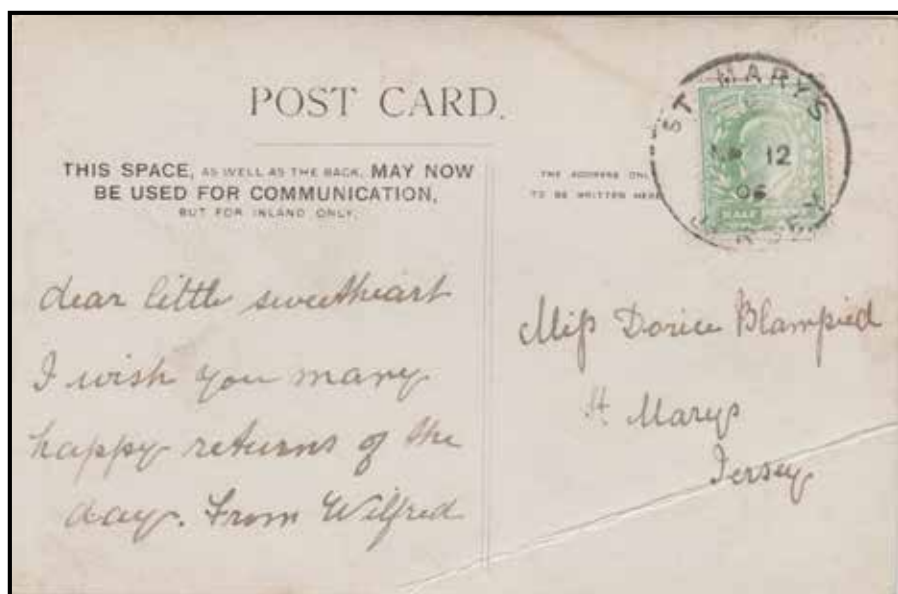 POST CARD.
THIS SPACE, AS WELL AS THE BACK, MAY NOW
BE USED FOR COMMUNICATION,
BUT FOR INLAND ONLY.
THE ADDRESS ONLY
TO BE WRITTEN HERE
ST MARYS
12
06
JERSEY
HALF
dear little sweetheart
I wish you many
happy returns of the
day. From Wilfred
Miſs Dorice Blampied
St Marys
Jersey